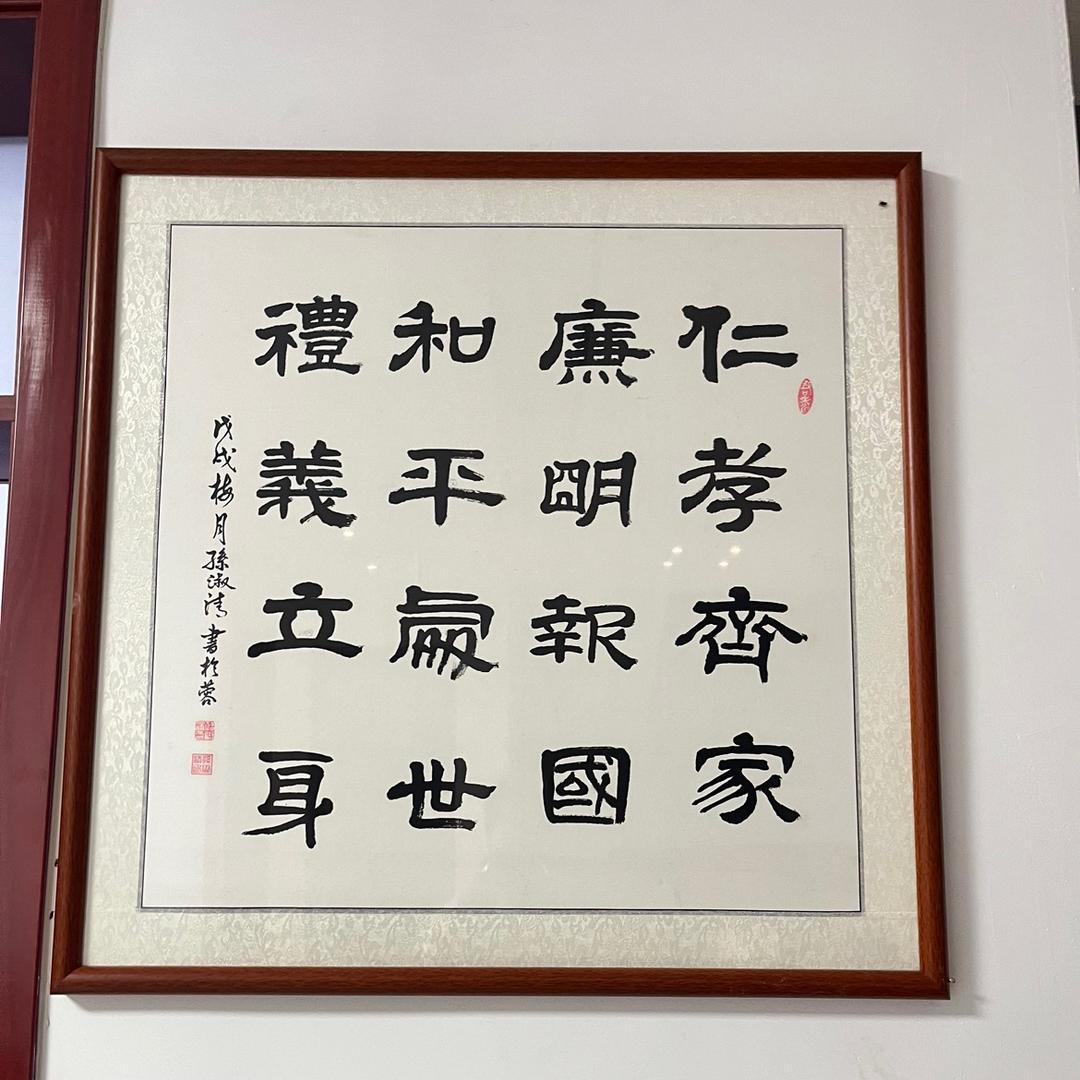 仁孝齊家
廉明報國
和平處世
禮義立身
戊戌梅月孫淑清書於蓉